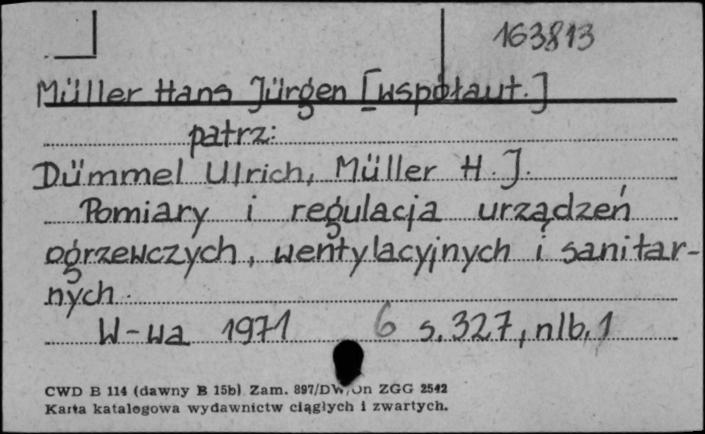 163813
Müller Hans Jürgen [współaut.]
patrz:
Dümmel Ulrich, Müller H. J.
Pomiary i regulacja urządzeń
ogrzewczych, wentylacyjnych i sanitar-
nych.
W-wa 1971 6 s. 327, nlb. 1
CWD B 114 (dawny B 15b) Zam. 897/DW/Jn ZGG 2542
Karta katalogowa wydawnictw ciągłych i zwartych.